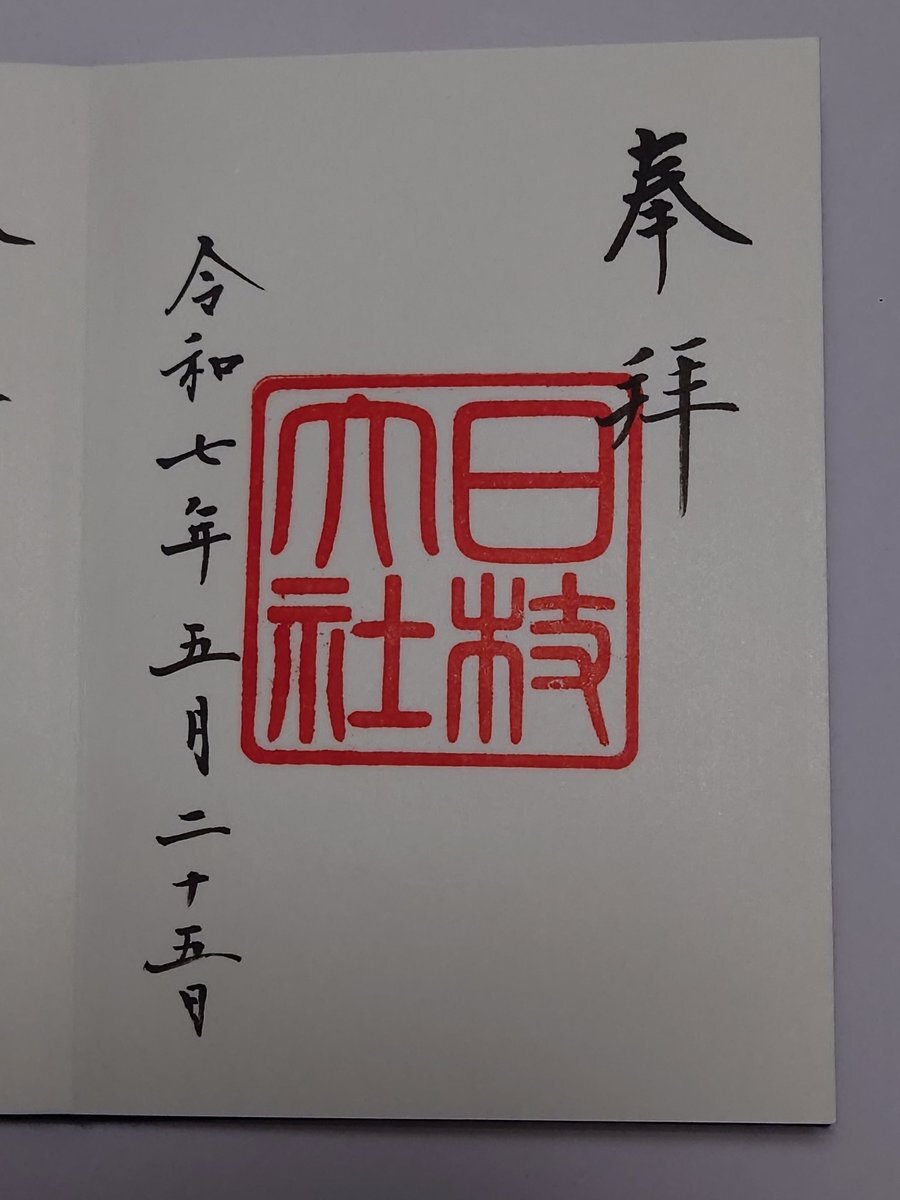 奉拝
日枝
大社
令和七年五月二十五日